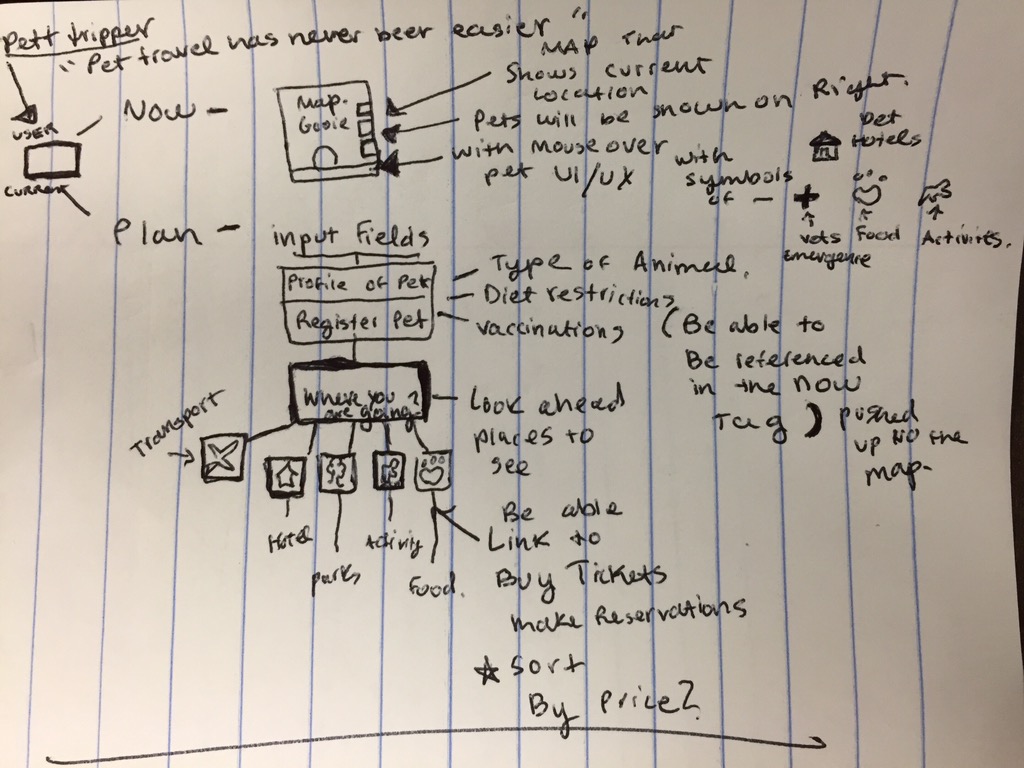 Pett tripper
"Pet travel has never beer easier"
USER
CURRENT
Now -
Map.
Gooie
MAP That
Shows current
location
Pets will be shown on Right.
with mouse over
pet UI/UX
with
symbols
of -
pet
Hotels
vets
Emergence
Food
Activites.
Plan -
input Fields
Profile of Pet
Register Pet
Type of Animal.
Diet restrictions
vaccinations
(Be able to
Be referenced
in the now
Tag)
pushed
up to the
map.
Where you
are going?
Look ahead
places to
see
Transport
Hotel
parks
Activiy
Food.
Be able
Link to
Buy Tickets
make Reservations
★ Sort
By price?